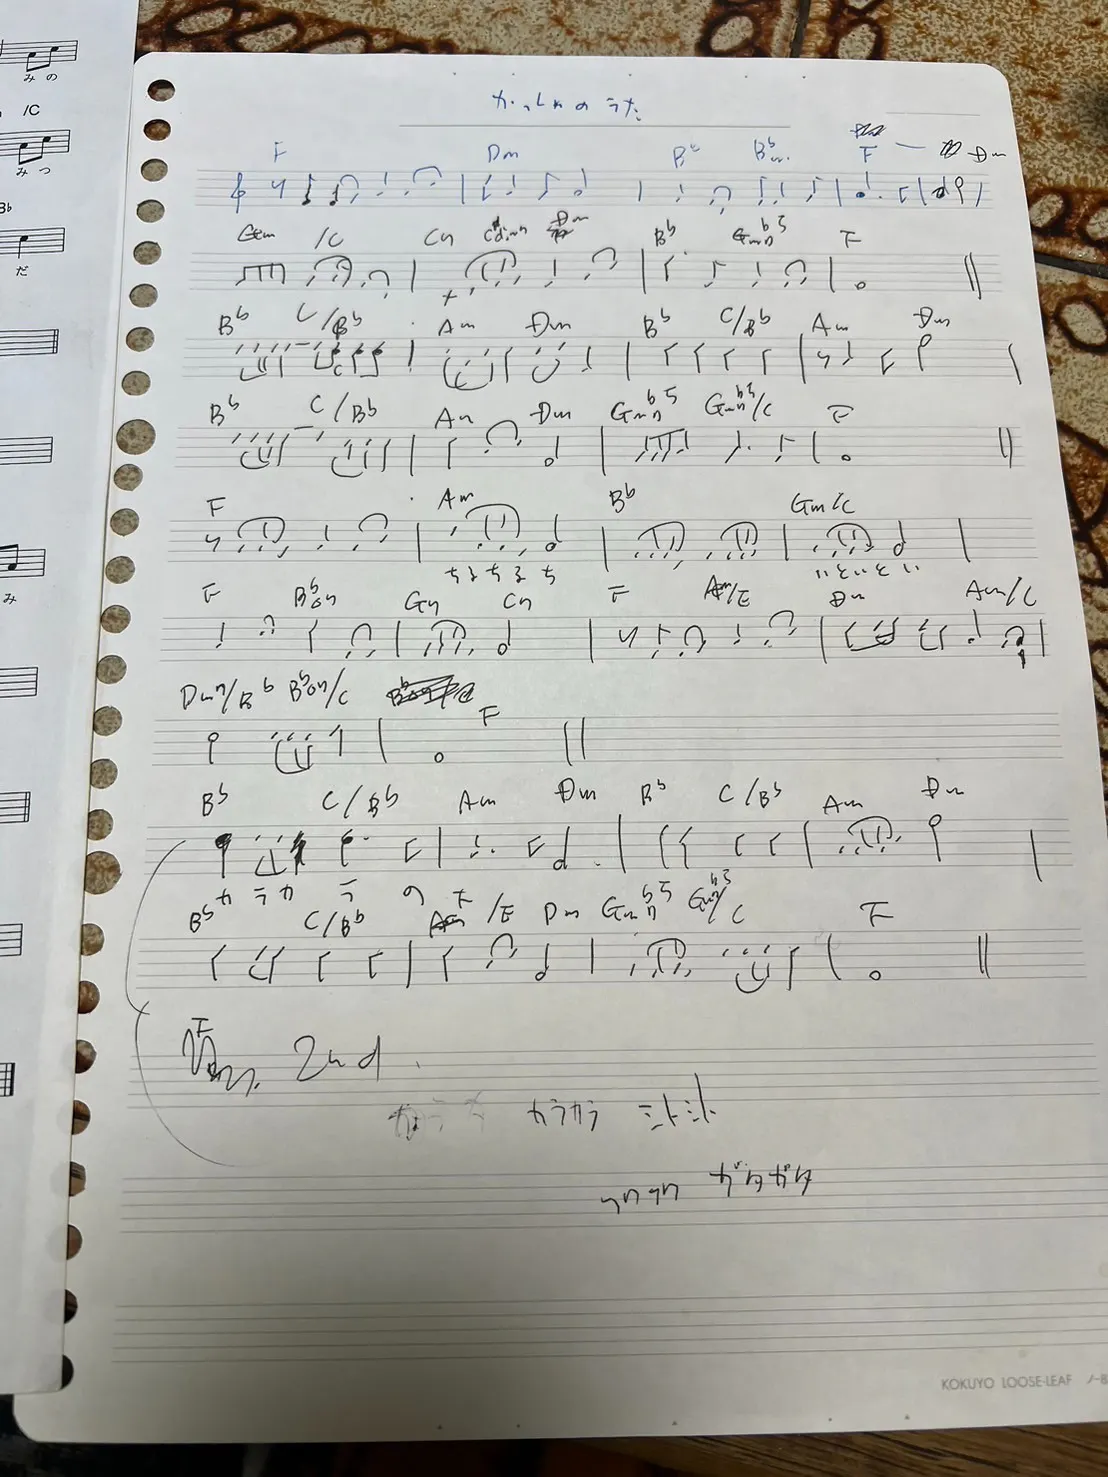 みの
/C
みつ
B♭
だ
み
のうた
F Dm B♭ B♭m F Dm
Gm /C C7 Cdim7 Dm B♭ Gm7♭5 F
B♭ C/B♭ Am Dm B♭ C/B♭ Am Dm
B♭ C/B♭ Am Dm Gm7♭5 Gm7♭5/C F
F Am B♭ Gm/C
ちよちよち
いといとい
F B♭ G7 C7 F Am/E Dm Am/C
Dm7/B♭ /C F
B♭ C/B♭ Am Dm B♭ C/B♭ Am Dm
カラカラの
B♭ C/B♭ F /E Dm Gm7♭5 Gm7♭5/C F
F
2nd
カラカラ シトシト
ガタガタ
KOKUYO LOOSE-LEAF